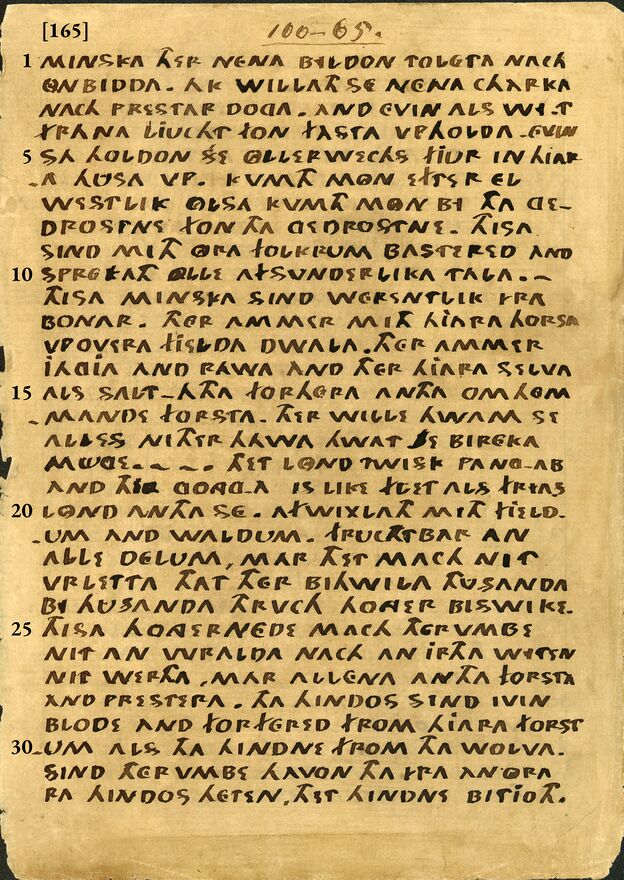 [165]
100-65.
1 MINSKA THER NENA BYLDON TOLETA NACH
ONBIDDA. AK WILLATH SE NENA CHARKA
NACH PRESTAR DOGA. AND EVIN ALS WY-T
FRANA LJUCHT FON FASTA VPHOLDA. EVIN
5 SA HOLDON SE OLLERWECHS FJUR IN HJAR
-A HUSA VP. KVMTH MON EFTER EL
WESTLIK OLSA KVMTH MON BI THA GE-
DROSTNE FON THA GEDROSTNE. THISA
SIND MITH ORA FOLKRUM BASTERED AND
10 SPREKATH OLLE AFSUNDERLIKA TALA. -
THISA MINSKA SIND WERENTLIK HRA
BONAR. THER AMMER MITH HJARA HORSA
VPOVERA FJELDA DWALA. THER AMMER
JAGJA AND RAWA AND THER HJARA SELVA
15 ALS SALT-ATHA FORHERA ANTHA OMHEM
-MANDE FORSTA. THER WILLE HWAM SE
ALLES NITHER HAWA HWAT SE BIREKA
MUGE. - - - THET LOND TWISK PANG-AB
AND THER GONG-A IS LIKE FLET ALS FRYAS
20 LOND ANTHA SE. AFWIXLATH MITH FJELD-
-UM AND WALDUM. FRUCHTBAR AN
ALLE DELUM, MAR THET MACH NIT
VRLETTA THAT THER BIHWILA THUSANDA
BI HUSANDA THRVCH HONGER BISWIKE.
25 THISA HONGERNEDE MACH THERVMBE
NIT AN WRALDA NACH AN IRTHA WYTEN
NIT WERTHA, MAR ALLENA ANTHA FORSTA
AND PRESTERA. THA HINDOS SIND IVIN
BLODE AND FORFERED FROM HJARA FORST
30 -UM ALS THA HINDNE FROM THA WOLVA.
SIND THERVMBE HAVON THA HRA ANORA
RA HINDOS HETEN, THET HINDNE BITJOTH.